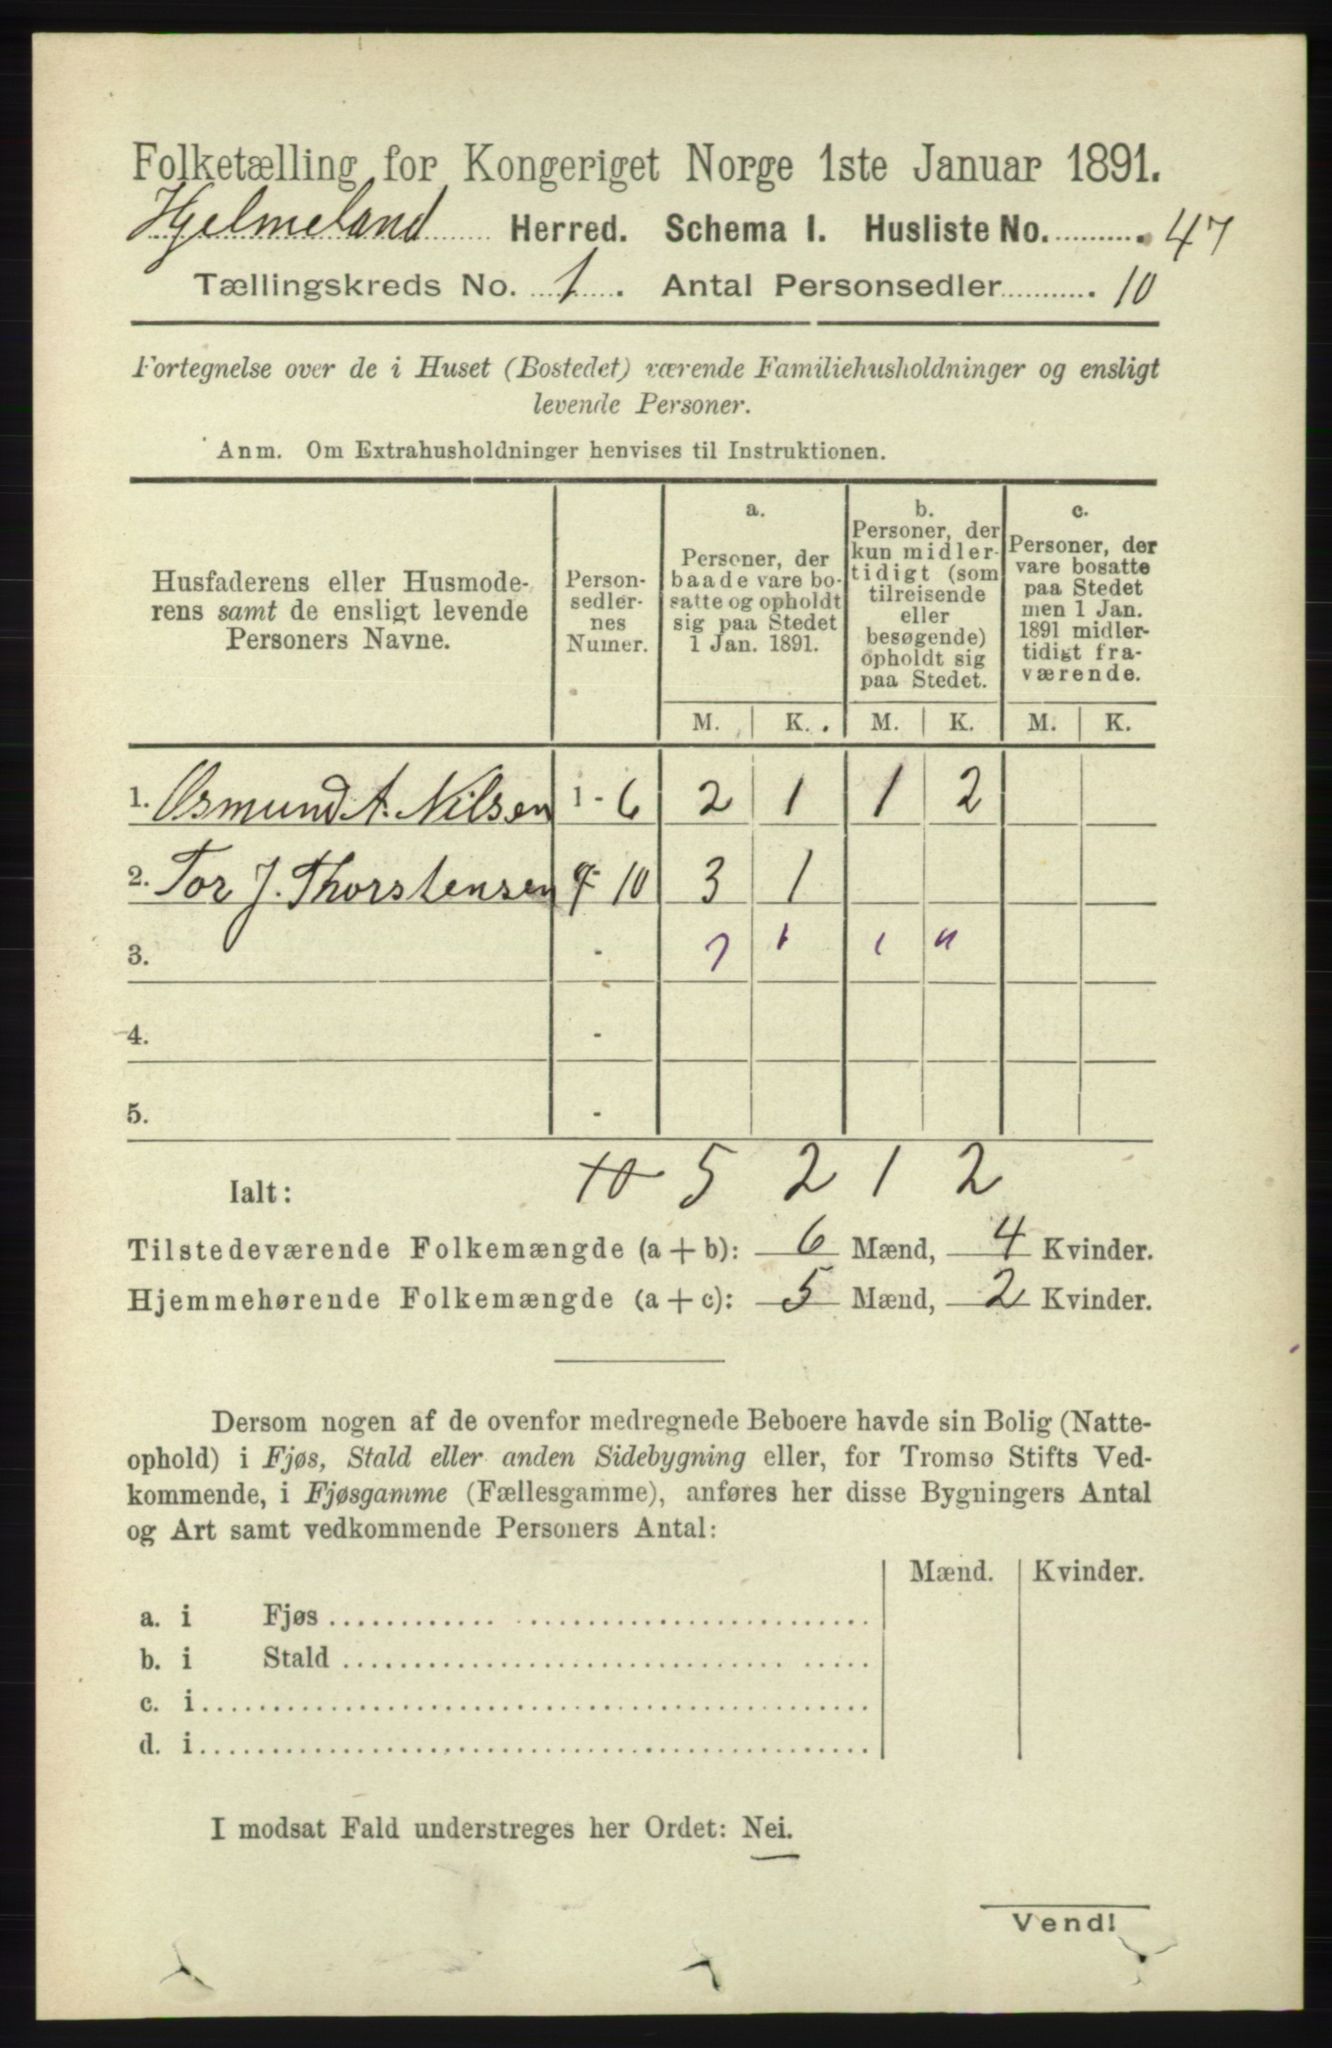 Folketælling for Kongeriget Norge 1ste Januar 1891.
Hjelmeland Herred. Schema I. Husliste No. 47
Tællingskreds No. 1. Antal Personsedler 10
Fortegnelse over de i Huset (Bostedet) værende Familiehusholdninger og ensligt
levende Personer.
Anm. Om Extrahusholdninger henvises til Instruktionen.
Husfaderens eller Husmode-
rens samt de ensligt levende
Personers Navne.
Person-
sedler-
nes
Numer.
a.
Personer, der
baade vare bo-
satte og opholdt
sig paa Stedet
1 Jan. 1891.
b.
Personer, der
kun midler-
tidigt (som
tilreisende
eller
besøgende)
opholdt sig
paa Stedet.
c.
Personer, der
vare bosatte
paa Stedet
men 1 Jan.
1891 midler-
tidigt fra-
værende.
M. K. M. K. M. K.
1. Osmund A. Nilsen 1 - 6 2 1 1 2
2. Tor J. Thorstensen 7- 10 3 1
3. -
4. -
5. -
Ialt: 10 5 2 1 2
Tilstedeværende Folkemængde (a + b): 6 Mænd, 4 Kvinder.
Hjemmehørende Folkemængde (a + c): 5 Mænd, 2 Kvinder.
Dersom nogen af de ovenfor medregnede Beboere havde sin Bolig (Natte-
ophold) i Fjøs, Stald eller anden Sidebygning eller, for Tromsø Stifts Ved-
kommende, i Fjøsgamme (Fællesgamme), anføres her disse Bygningers Antal
og Art samt vedkommende Personers Antal:
Mænd. Kvinder.
a. i Fjøs
b. i Stald
c. i
d. i
I modsat Fald understreges her Ordet: Nei.
Vend!